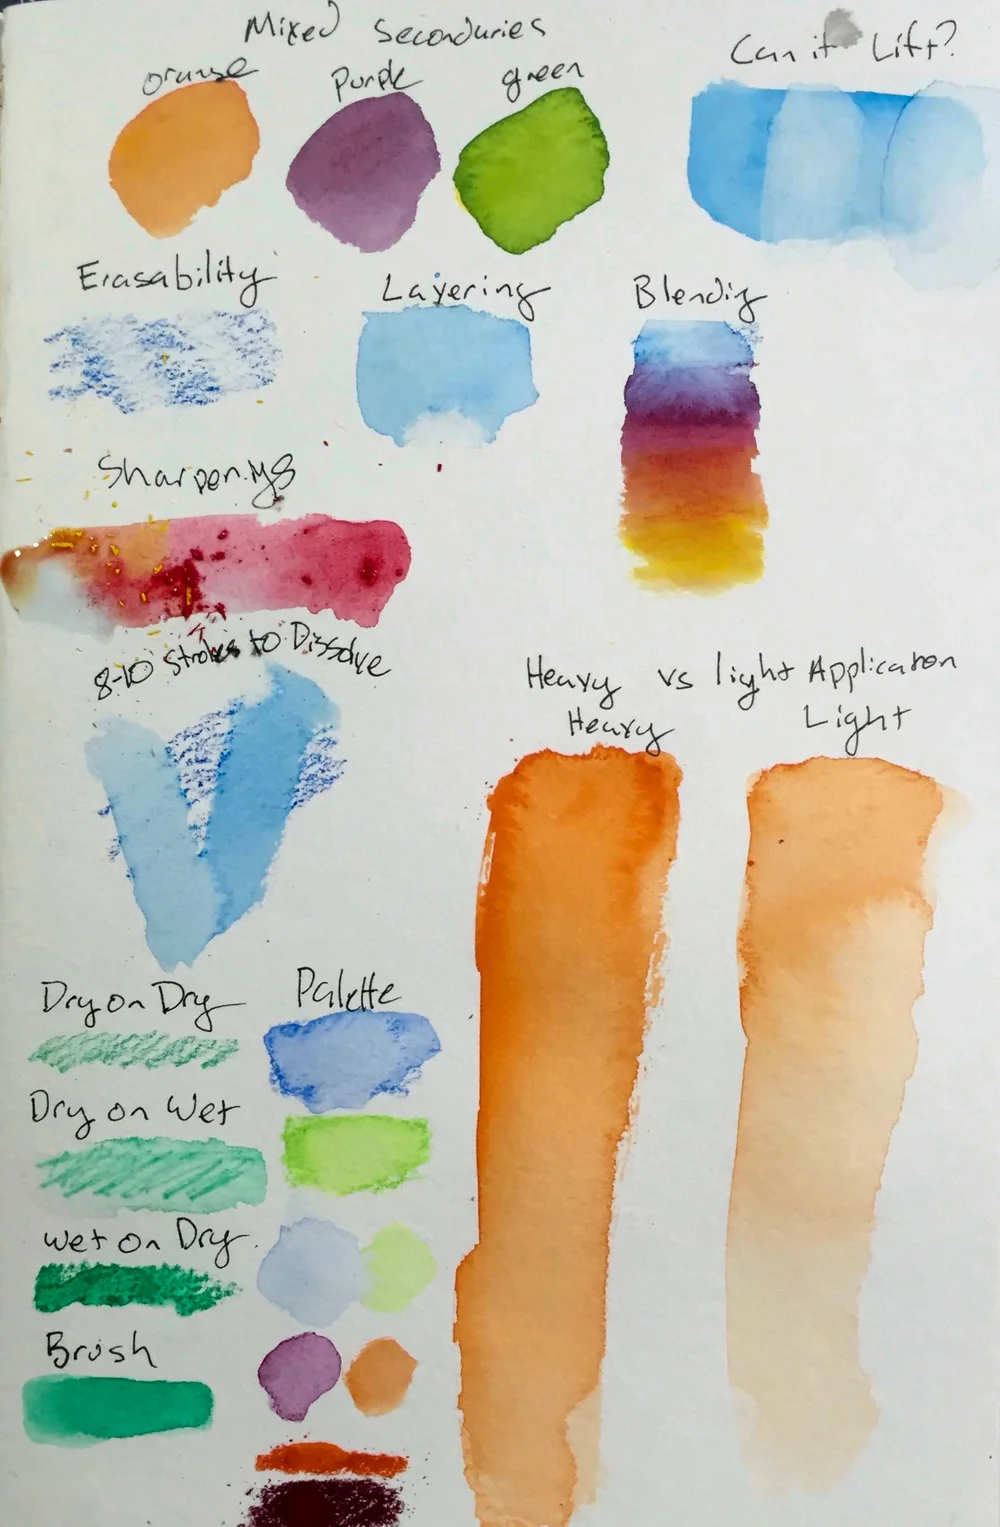 Mixed Secondaries
orange Purple green
Can it Lift?
Erasability
Layering
Blendig
Sharpenings
8-10 Strokes to Dissolve
Heavy vs light Application
Heavy Light
Dry on Dry
Palette
Dry on Wet
Wet on Dry.
Brush